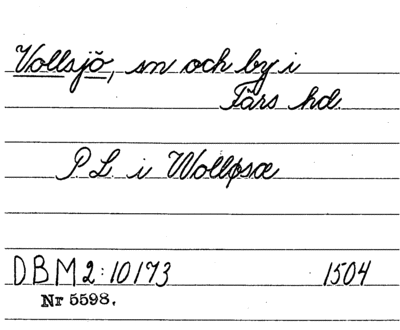 Vollsjö, sn och by i
Färs hd
P L i Wolløsæ
DBM 2:10173 1504
Nr 5598.